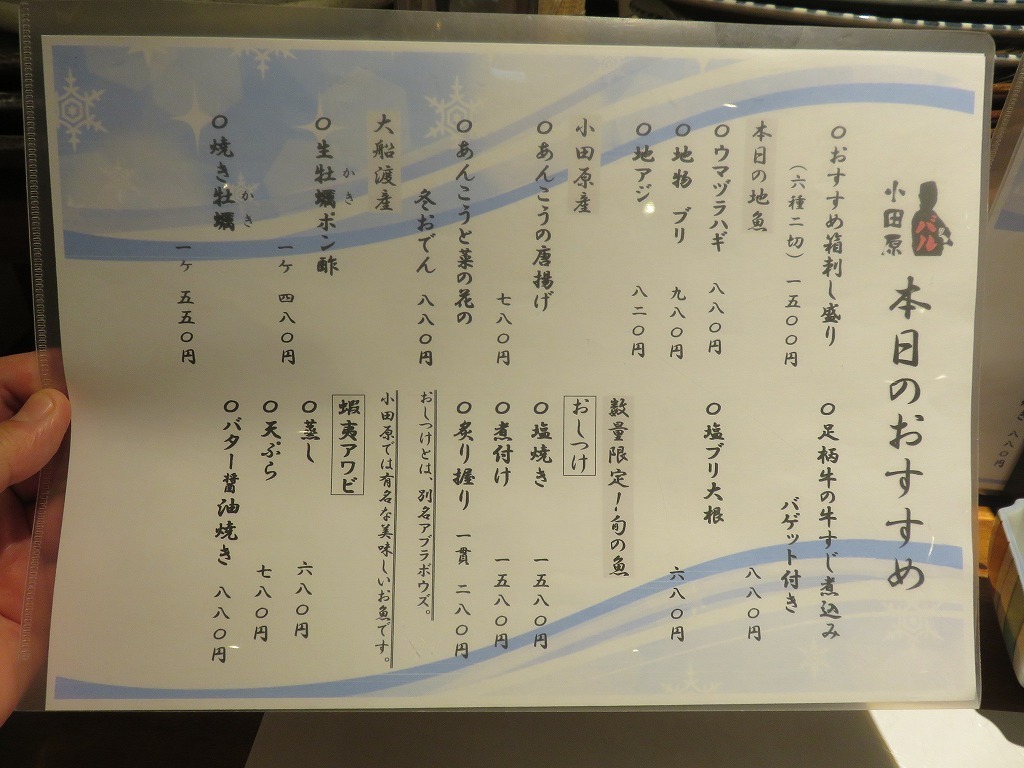 小田原
バル
本日のおすすめ
○おすすめ箱刺し盛り
(六種二切) 一五〇〇円
本日の地魚
○ウマヅラハギ 八八〇円
○地物 ブリ 九八〇円
○地アジ 八二〇円
小田原産
○あんこうの唐揚げ
七八〇円
○あんこうと菜の花の
冬おでん 八八〇円
大船渡産
かき
○生牡蠣ポン酢
一ヶ 四八〇円
かき
○焼き牡蠣
一ヶ 五五〇円
○足柄牛の牛すじ煮込み
バゲット付き
八八〇円
○塩ブリ大根
六八〇円
数量限定!旬の魚
おしつけ
○塩焼き 一五八〇円
○煮付け 一五八〇円
○炙り握り 一貫 二八〇円
おしつけとは、別名アブラボウズ。
小田原では有名な美味しいお魚です。
蝦夷アワビ
○蒸し 六八〇円
○天ぷら 七八〇円
○バター醤油焼き 八八〇円